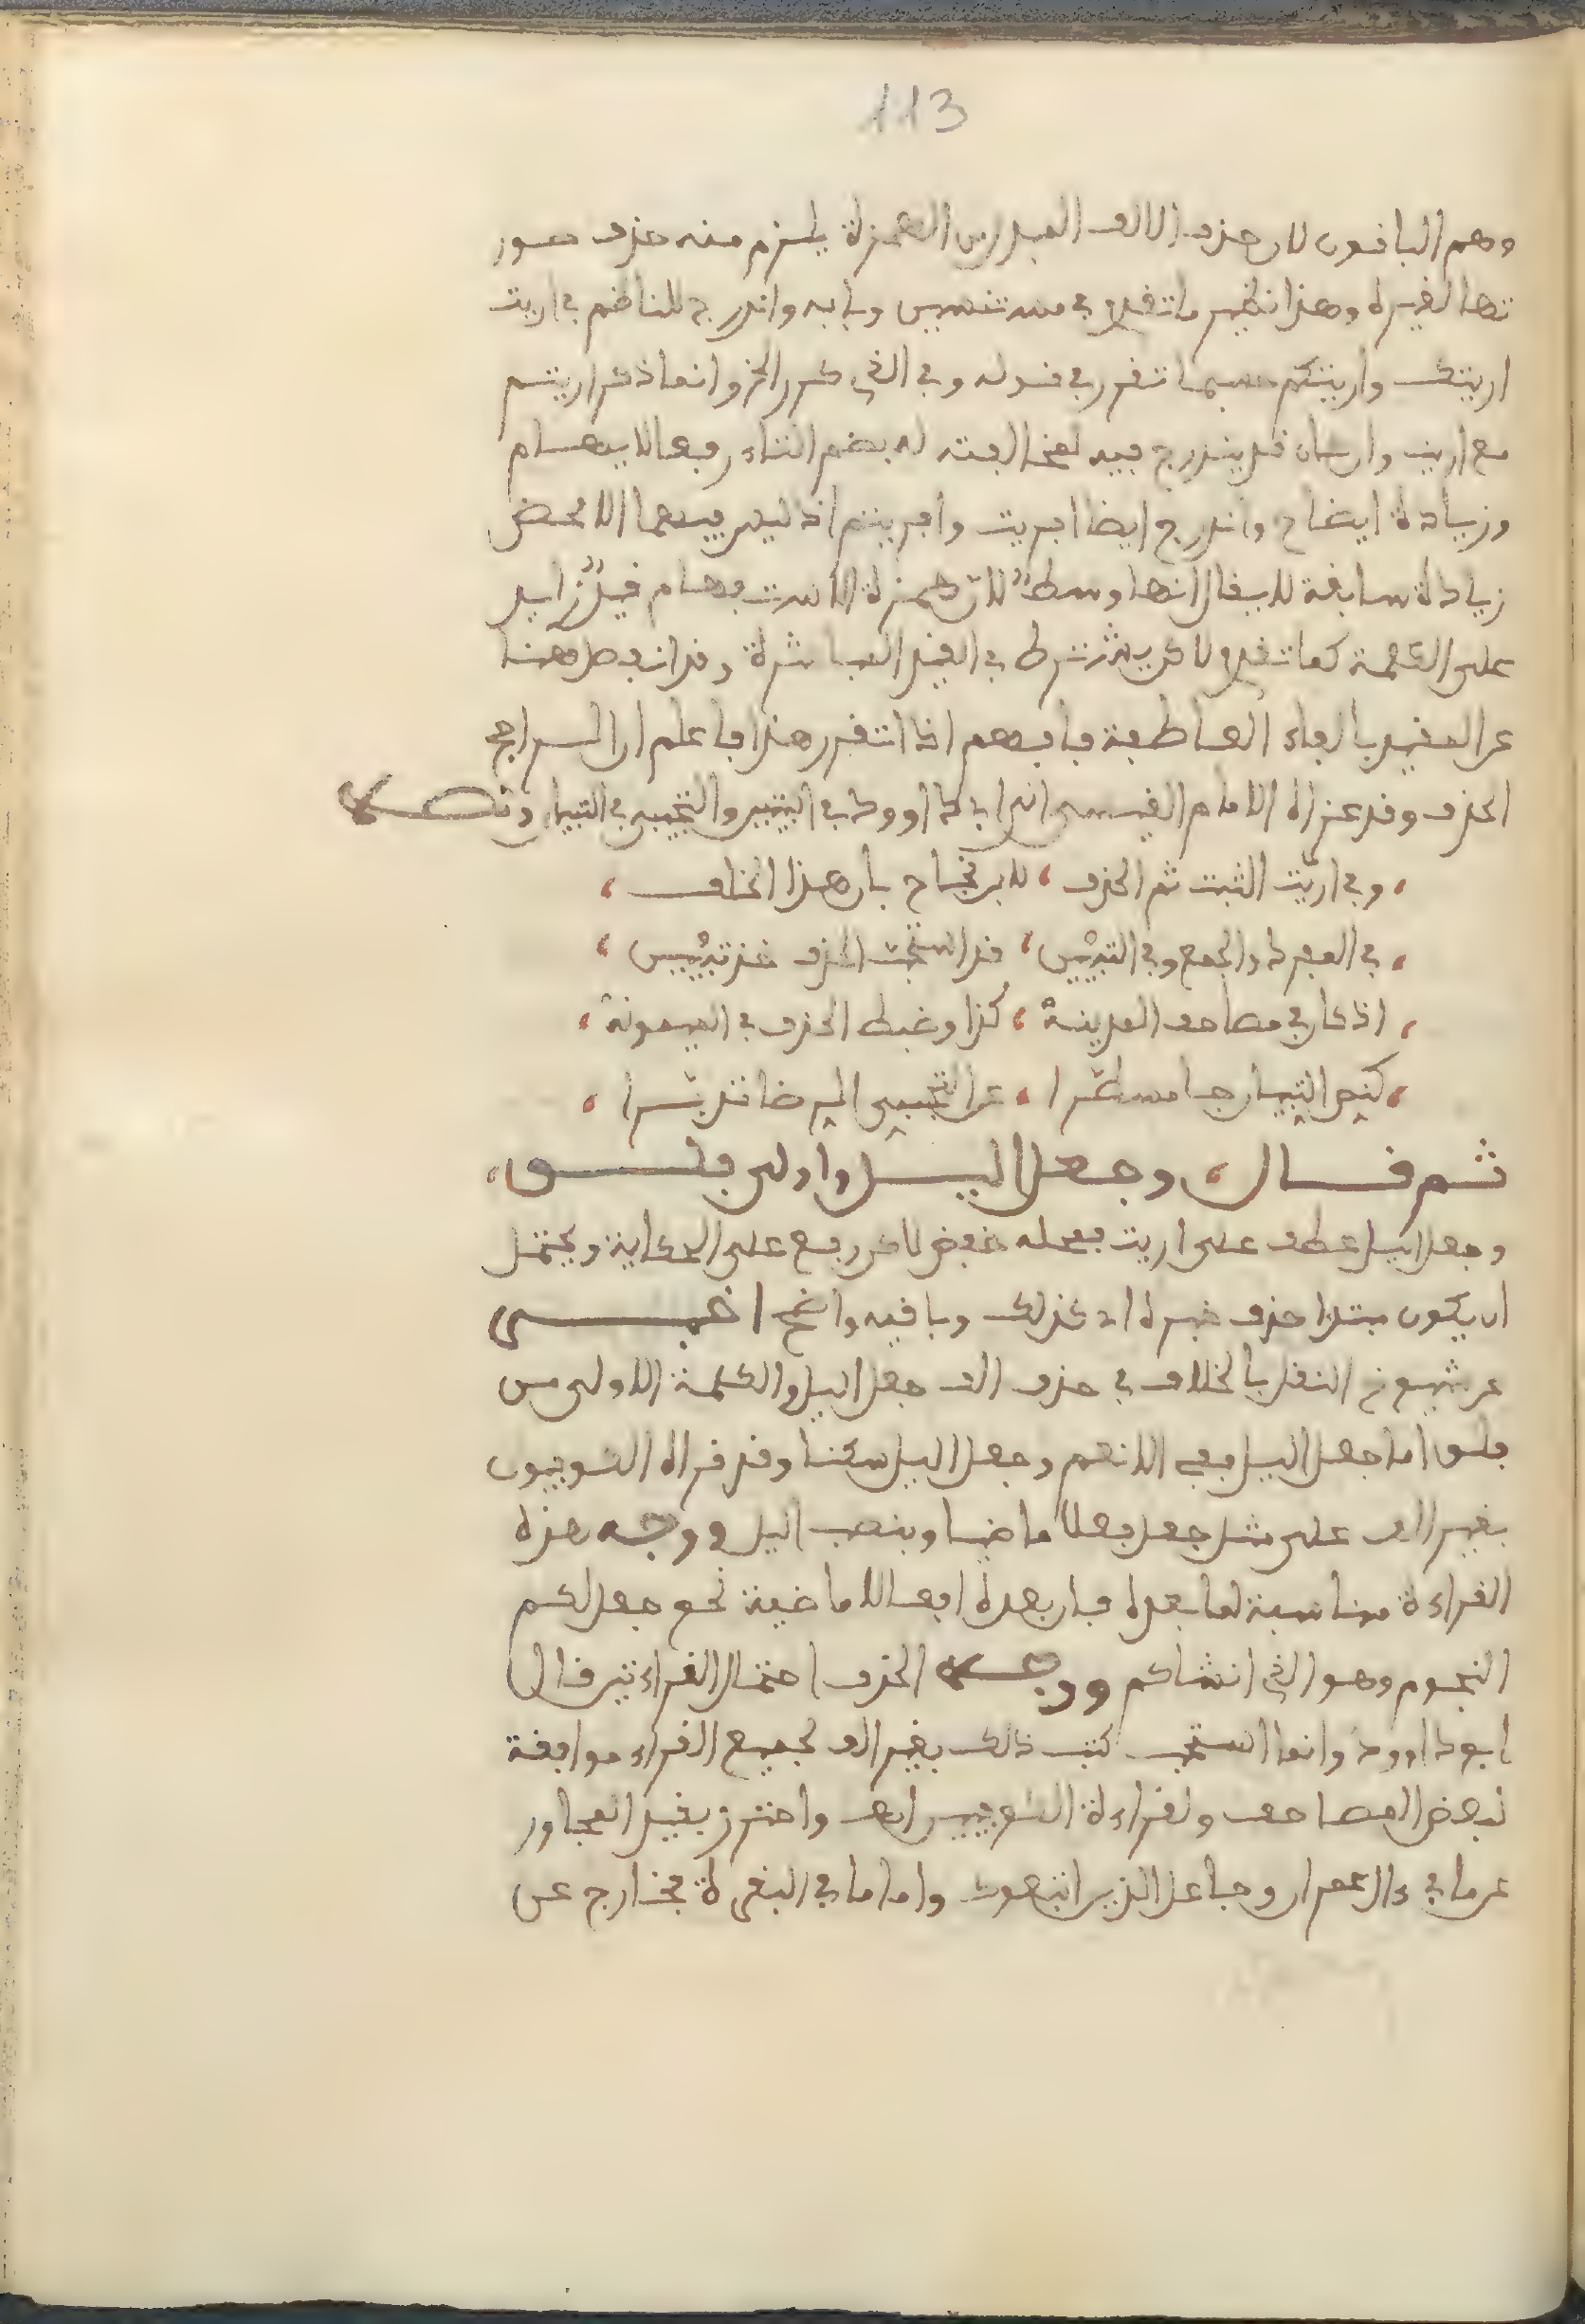 113
وهم الباقون لان حذف الالف المبدل من الهمزة يلزم منه حذف صور
تها لغيره وهذا نظير ما تقدم في مستنسين وبابه واندرج للناظم في اريت
اريتك واريتكم حسبما تقرر في قوله وفي الذي كرر الخ وانما ذكر اريتم
مع اريت وان كان قد يندرج فيه لمخالفته له بضم التاء رفعا للابهام
وزيادة ايضاح واندرج ايضا افريت وافريتم اذ ليس فيهما الا محض
زيادة سابقة لا يقال انها وسط لان همزة الاستفهام قيد زايد
على الكلمة كما تقدم لاكن يشترط في القيد المباشرة وقد انفصل هنا
عن المفيد بالفاء العاطفة فافهم اذا تقرر هذا فاعلم ان الراجح
الحذف وقد عزاه الامام القيسي الى ابي داوود في التبيين والتجيبي في التبيان ونصه
وفي اريت الثبت ثم الحذف لابن نجاح بان هذا الخلف
في المفرد والجمع وفي التبيين قد استحب الحذف خذ تبيين
اذ كان في مصاحف المدينة كذا وضبط الحذف في الميمونة
كنص التبيان جا مسطرا عن التجيبي الرضا تدبرا
ثم قال وجعل اليل واولى فلق
وجعل اليل عطف على اريت فمحله خفض لاكن رفع على الحكاية ويحتمل
ان يكون مبتدا حذف خبره اي كذلك وباقيه واضح اخبر
عن شيوخ النقل بالخلاف في حذف الف جعل اليل والكلمة الاولى من
فلق اما جعل اليل ففي الانعم وجعل اليل سكنا وقد قراه الكوفيون
بغير الف على مثل جعل فعلا ماضيا وبنصب اليل ووجه هذه
القراءة مناسبة لما بعده فان بعده افعالا ماضية نحو جعل لكم
النجوم وهو الذي انشاكم ووجه الحذف احتمال القراءتين قال
ابو داوود وانما استحب كتب ذلك بغير الف لجميع القراء موافقة
لبعض المصاحف ولقراءة الكوفيين اهـ واحترز بقيد المجاور
عن ما في ءال عمران وجاعل الذين اتبعوك واما ما في البقرة فخارج عن